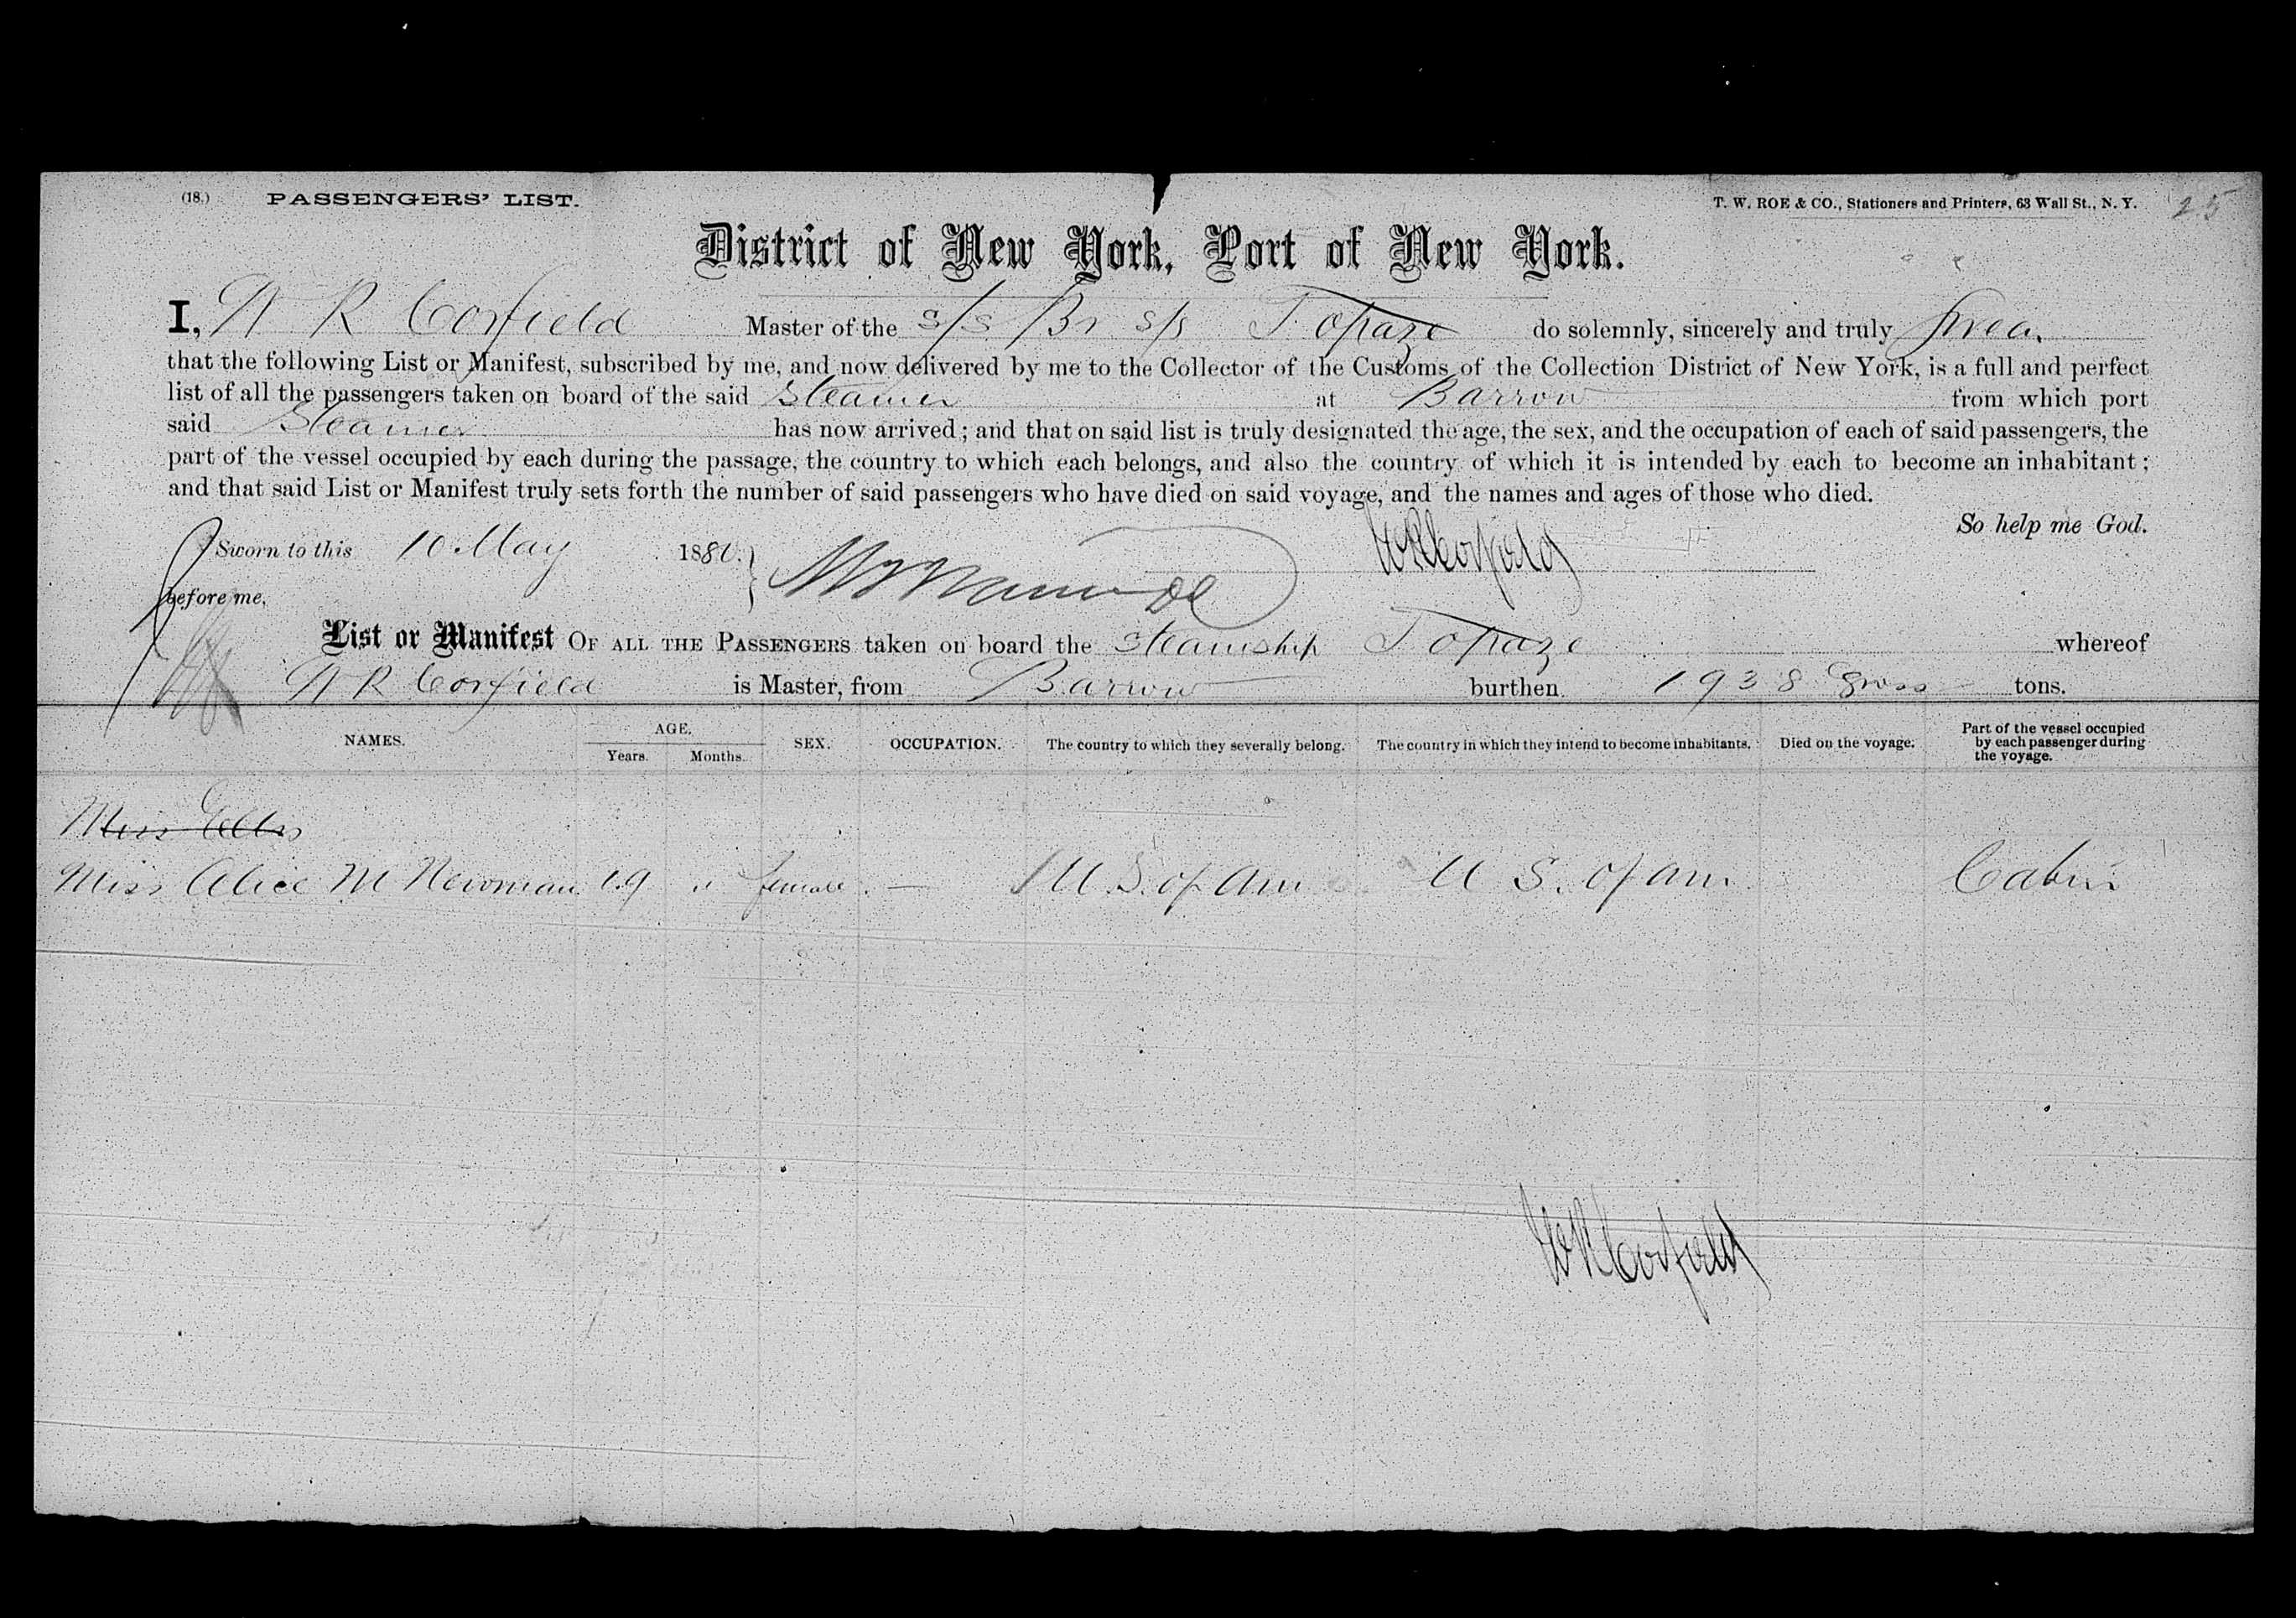 (18.) PASSENGERS' LIST. T. W. ROE & CO., Stationers and Printers, 63 Wall St., N. Y. 25
District of New York, Port of New York.
I, W R Corfield Master of the s/s Br s/s Topaze do solemnly, sincerely and truly
that the following List or Manifest, subscribed by me, and now delivered by me to the Collector of the Customs of the Collection District of New York, is a full and perfect
list of all the passengers taken on board of the said Steamer at Barrow from which port
said Steamer has now arrived; and that on said list is truly designated the age, the sex, and the occupation of each of said passengers, the
part of the vessel occupied by each during the passage, the country to which each belongs, and also the country of which it is intended by each to become an inhabitant;
and that said List or Manifest truly sets forth the number of said passengers who have died on said voyage, and the names and ages of those who died.
So help me God.
Sworn to this 10 May 1880. WRCorfield
before me,
List or Manifest OF ALL THE PASSENGERS taken on board the steamship Topaze whereof
W R Corfield is Master, from Barrow burthen 1938 gross tons.
NAMES. AGE. Years. Months. SEX. OCCUPATION. The country to which they severally belong. The country in which they intend to become inhabitants. Died on the voyage. Part of the vessel occupied by each passenger during the voyage.
Miss Ellis
Miss Alice M Newman 19 " female — U.S. of Am U S. of Am. Cabin
WRCorfield